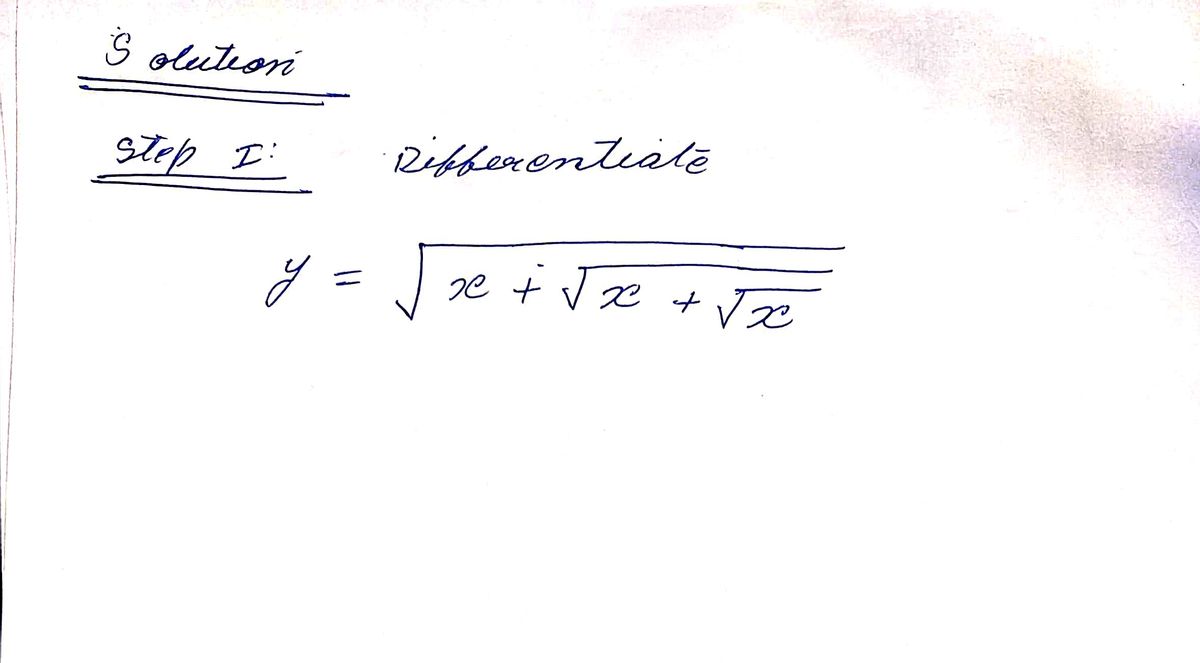 Solution
Step I: Differentiate
y = √(x + √(x + √x))